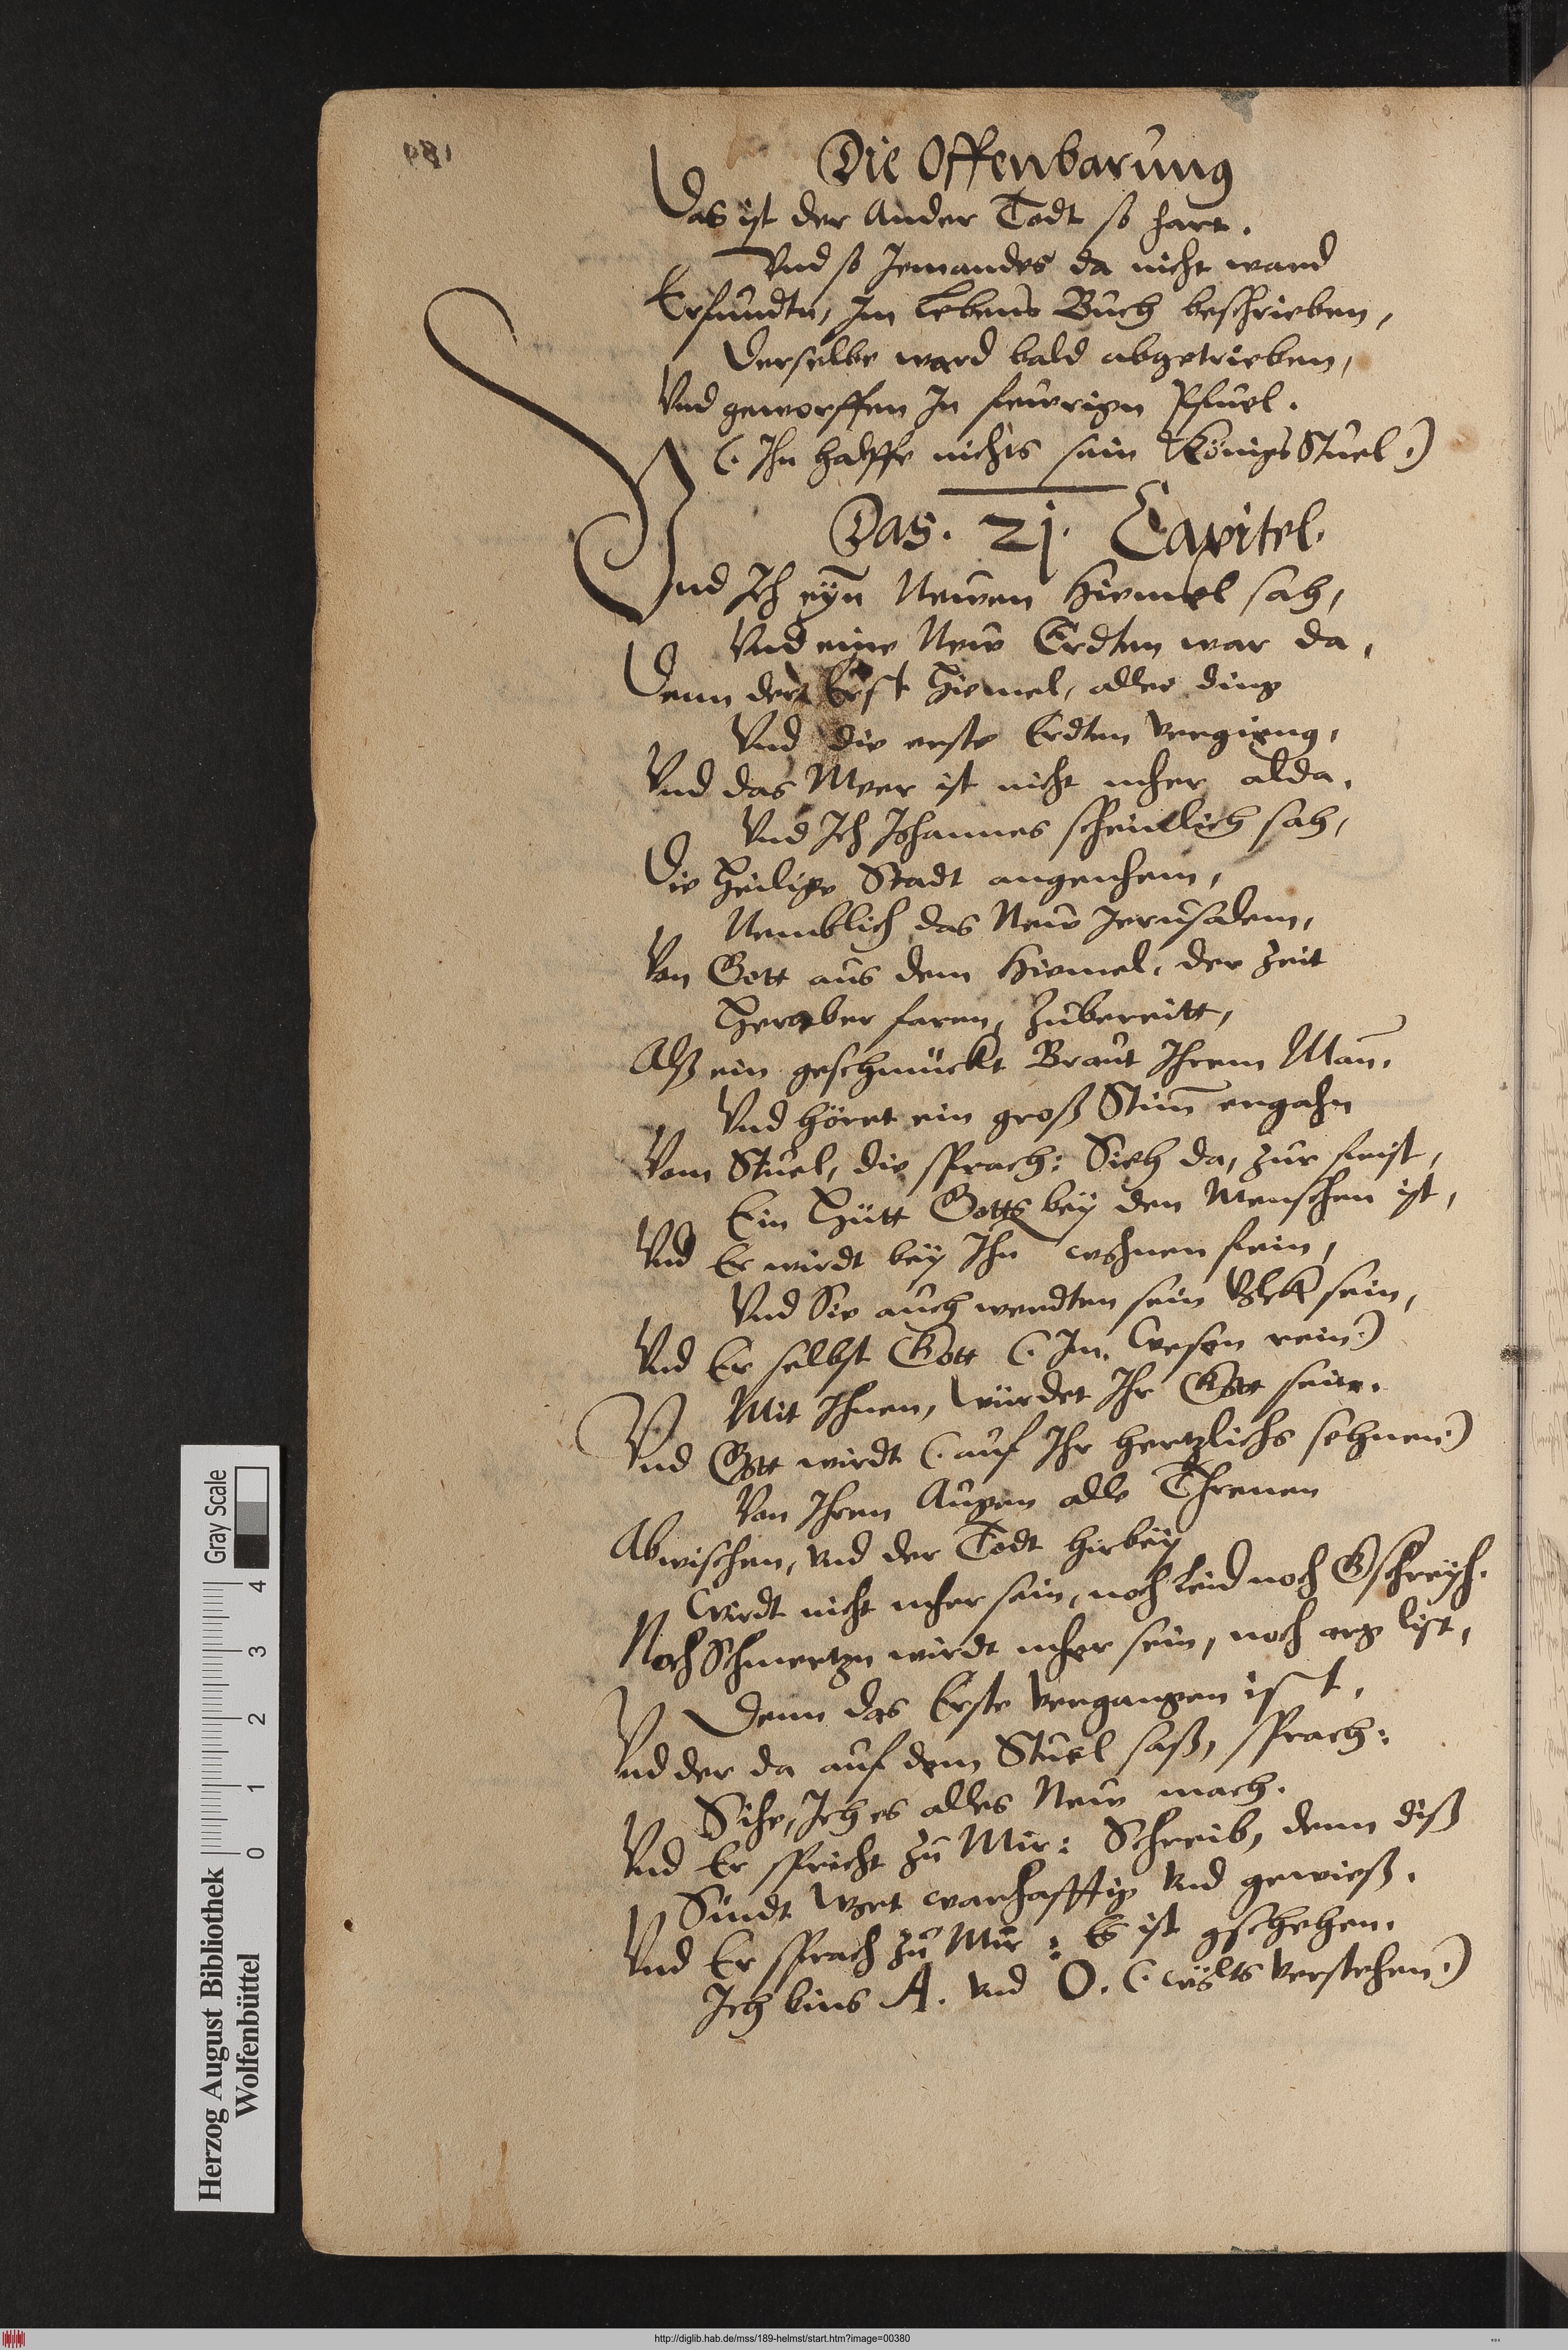 081
Die Offenbarung
Das ist der Ander Todt so hart.
Vnd so Jemandes da nicht ward
Erfundtn, Im Lebens Buch beschrieben,
Derselbe ward bald abgetrieben,
Vnd geworffen In feurign Pfuel.
(. Ihn halffe nichts sein Königs Stuel.)
Das. 21. Capitel.
Vnd Ich eyn Newen Himmel sah,
Vnd eine New Erdten war da,
Denn der Erst Himel, aller ding
Vnd die erste Erdten vergieng,
Vnd das Meer ist nicht mher alda.
Vnd Ich Johannes scheinlich sah,
Die Heilige Stadt angenhem,
Nemblich das New Jerusalem,
Von Gott aus dem Himmel, der Zeit
Heraber faren, Zubereitt,
Alß ein geschmückt Braut Ihrem Man.
Vnd höret ein groß Stim ergahn
Vom Stuel, die sprach: Sieh da, zur frist,
Ein Hütt Gotts bey den Menschen ist,
Vnd Er wirdt bey Ihn wohnen fein,
Vnd Sie auch werdten sein Volck sein,
Vnd Er selbst Gott (. Im Wesen rein.)
Mit Ihnen, würdet Ihr Gott sein.
Vnd Gott wirdt (. auf Ihr hertzlichs sehnen.)
Von Ihren Augen alle Threnen
Abwischen, vnd der Todt hirbey
Wirdt nicht mher sein, noch Leid noch Gschreyh.
Noch Schmertzn wirdt mher sein, noch arg list,
Denn das Erste vergangen ist,
Vnd der da auf dem Stuel saß, sprach:
Sihe, Ich es alles New mach.
Vnd Er spricht zu Mir: Schreib, denn diß
Sindt Wort warhafftig vnd gewieß.
Vnd Er sprach zu Mir: Es ist gschehen.
Ich bins A. vnd O. (. wolts verstehen.)
Herzog August Bibliothek
Wolfenbüttel
0 1 2 3 4
Gray Scale
http://diglib.hab.de/mss/189-helmst/start.htm?image=00380